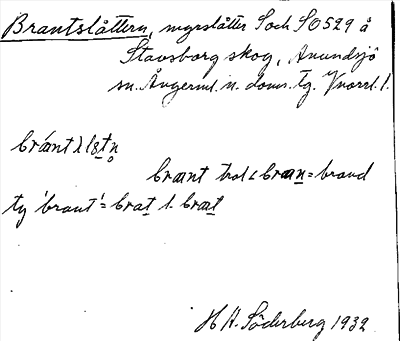 Brantslåttern, myrslåtter S och SO 529 å
Stavsborg skog, Anundsjö
sn. Ångerml. n. doms. tg. Vnorrl. l.
brant trol < bran = brand
ty 'brant' = brat l. brat
H A. Söderberg 1932